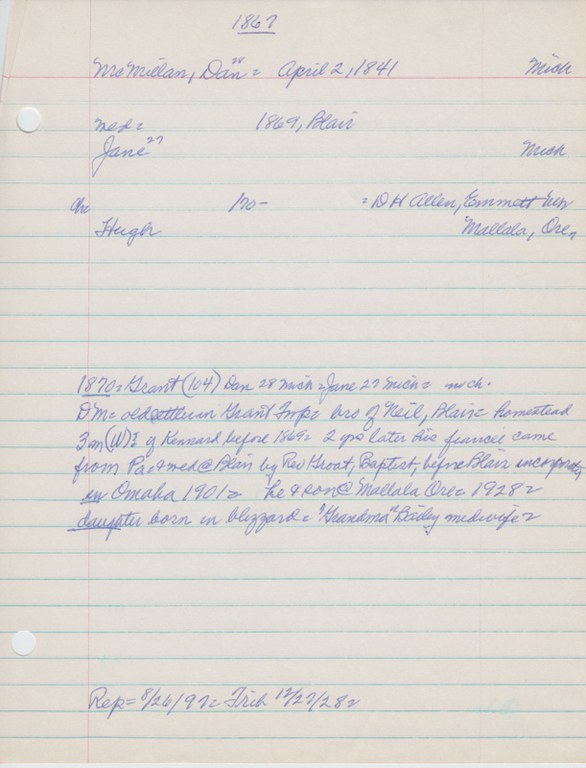 1867
McMillan, Dan²⁸ = April 2, 1841 Mich
med = 1869, Blair
Jane²⁷ Mich
Chn 170- = D H Allen, Emmett
Hugh Mallala, Ore,
1870 = Grant (104) Dan 28 Mich = Jane 27 Mich =
DM = old settler in Grant Twp = bro of Neil, Blair = homestead
3 m (W) = of Kennard before 1869 = 2 yrs later his fiancie came
from Pa & med @ Blair by Rev Groat, Baptist, before Blair incorporated
in Omaha 1901 = he & son @ Mallala Ore = 1928 =
daughter born in blizzard = "Grandma" Bailey midwife =
Rep = 8/26/97 = Trib 12/27/28 =